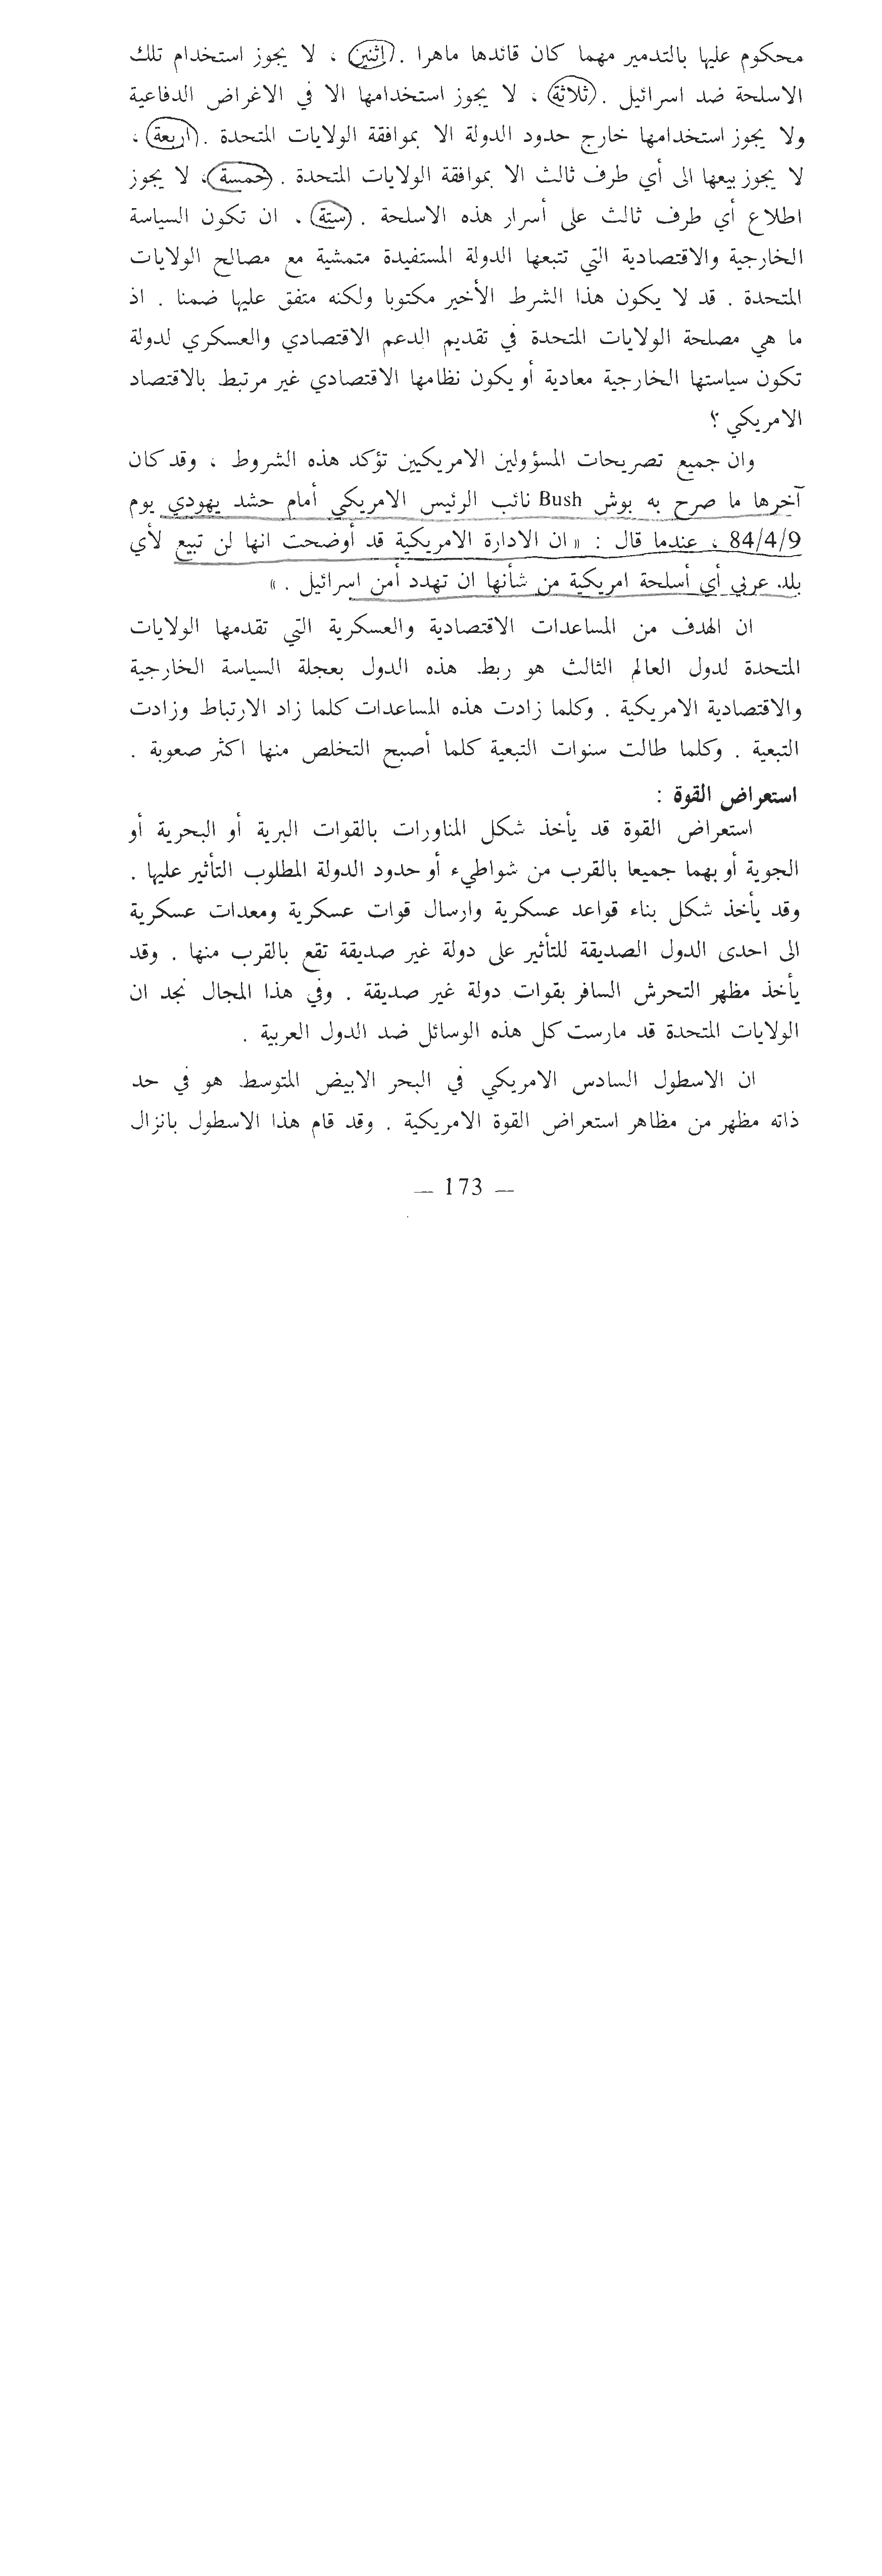 محكوم عليها بالتدمير مهما كان قائدها ماهرا . اثنين ، لا يجوز استخدام تلك
الاسلحة ضد اسرائيل . ثلاثة ، لا يجوز استخدامها الا في الاغراض الدفاعية
ولا يجوز استخدامها خارج حدود الدولة الا بموافقة الولايات المتحدة . اربعة ،
لا يجوز بيعها الى أي طرف ثالث الا بموافقة الولايات المتحدة . خمسة ، لا يجوز
اطلاع أي طرف ثالث على أسرار هذه الاسلحة . ستة ، ان تكون السياسة
الخارجية والاقتصادية التي تتبعها الدولة المستفيدة متمشية مع مصالح الولايات
المتحدة . قد لا يكون هذا الشرط الأخير مكتوبا ولكنه متفق عليها ضمنا . اذ
ما هي مصلحة الولايات المتحدة في تقديم الدعم الاقتصادي والعسكري لدولة
تكون سياستها الخارجية معادية أو يكون نظامها الاقتصادي غير مرتبط بالاقتصاد
الامريكي ؟
وان جميع تصريحات المسؤولين الامريكيين تؤكد هذه الشروط ، وقد كان
آخرها ما صرح به بوش Bush نائب الرئيس الامريكي أمام حشد يهودي يوم
84/4/9 ، عندما قال : « ان الادارة الامريكية قد أوضحت انها لن تبيع لأي
بلد عربي أي أسلحة امريكية من شأنها ان تهدد أمن اسرائيل . »
ان الهدف من المساعدات الاقتصادية والعسكرية التي تقدمها الولايات
المتحدة لدول العالم الثالث هو ربط هذه الدول بعجلة السياسة الخارجية
والاقتصادية الامريكية . وكلما زادت هذه المساعدات كلما زاد الارتباط وزادت
التبعية . وكلما طالت سنوات التبعية كلما أصبح التخلص منها اكثر صعوبة .
استعراض القوة :
استعراض القوة قد يأخذ شكل المناورات بالقوات البرية أو البحرية أو
الجوية أو بهما جميعا بالقرب من شواطيء أو حدود الدولة المطلوب التأثير عليها .
وقد يأخذ شكل بناء قواعد عسكرية وارسال قوات عسكرية ومعدات عسكرية
الى احدى الدول الصديقة للتأثير على دولة غير صديقة تقع بالقرب منها . وقد
يأخذ مظهر التحرش السافر بقوات دولة غير صديقة . وفي هذا المجال نجد ان
الولايات المتحدة قد مارست كل هذه الوسائل ضد الدول العربية .
ان الاسطول السادس الامريكي في البحر الابيض المتوسط هو في حد
ذاته مظهر من مظاهر استعراض القوة الامريكية . وقد قام هذا الاسطول بانزال
— 173 —